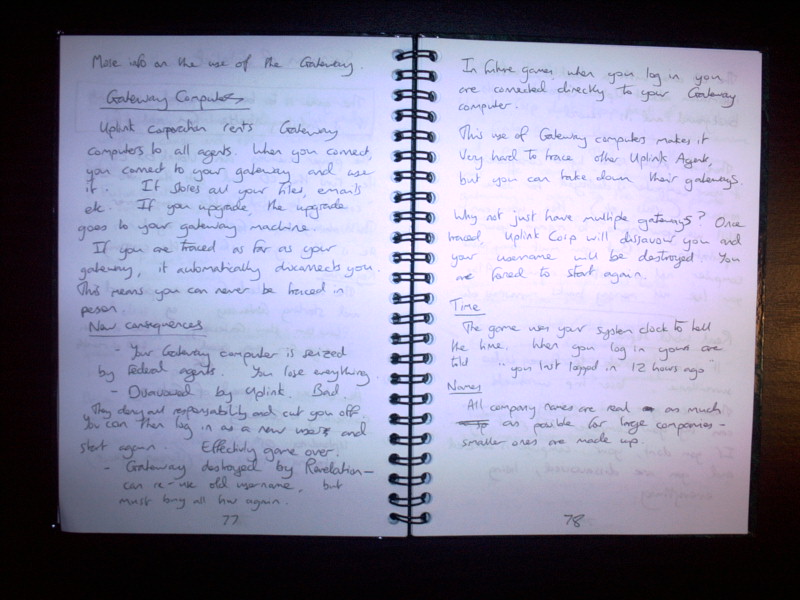 More info on the use of the Gateway.
Gateway Computers
Uplink corporation rents Gateway
computers to all agents. When you connect,
you connect to your gateway and use
it. It stores all your files, emails
etc. If you upgrade, the upgrade
goes to your gateway machine.
If you are traced as far as your
gateway, it automatically disconnects you.
This means you can never be traced in
person.
New consequences
- Your Gateway computer is seized
by federal agents. You lose everything.
- Disavowed by Uplink. Bad.
They deny all responsibility and cut you off.
You can then log in as a new user and
start again. Effectively game over.
- Gateway destroyed by Revelation -
can re-use old username, but
must buy all h/w again.
77
In future games when you log in you
are connected directly to your Gateway
computer.
This use of Gateway computers makes it
very hard to trace other Uplink Agents,
but you can take down their gateways.
Why not just have multiple gateways? Once
traced, Uplink Corp will dissavow you and
your username will be destroyed. You
are forced to start again.
Time
The game uses your system clock to tell
the time. When you log in you are
told "you last logged in 12 hours ago"
Names
All company names are real as much
as possible for large companies -
smaller ones are made up.
78